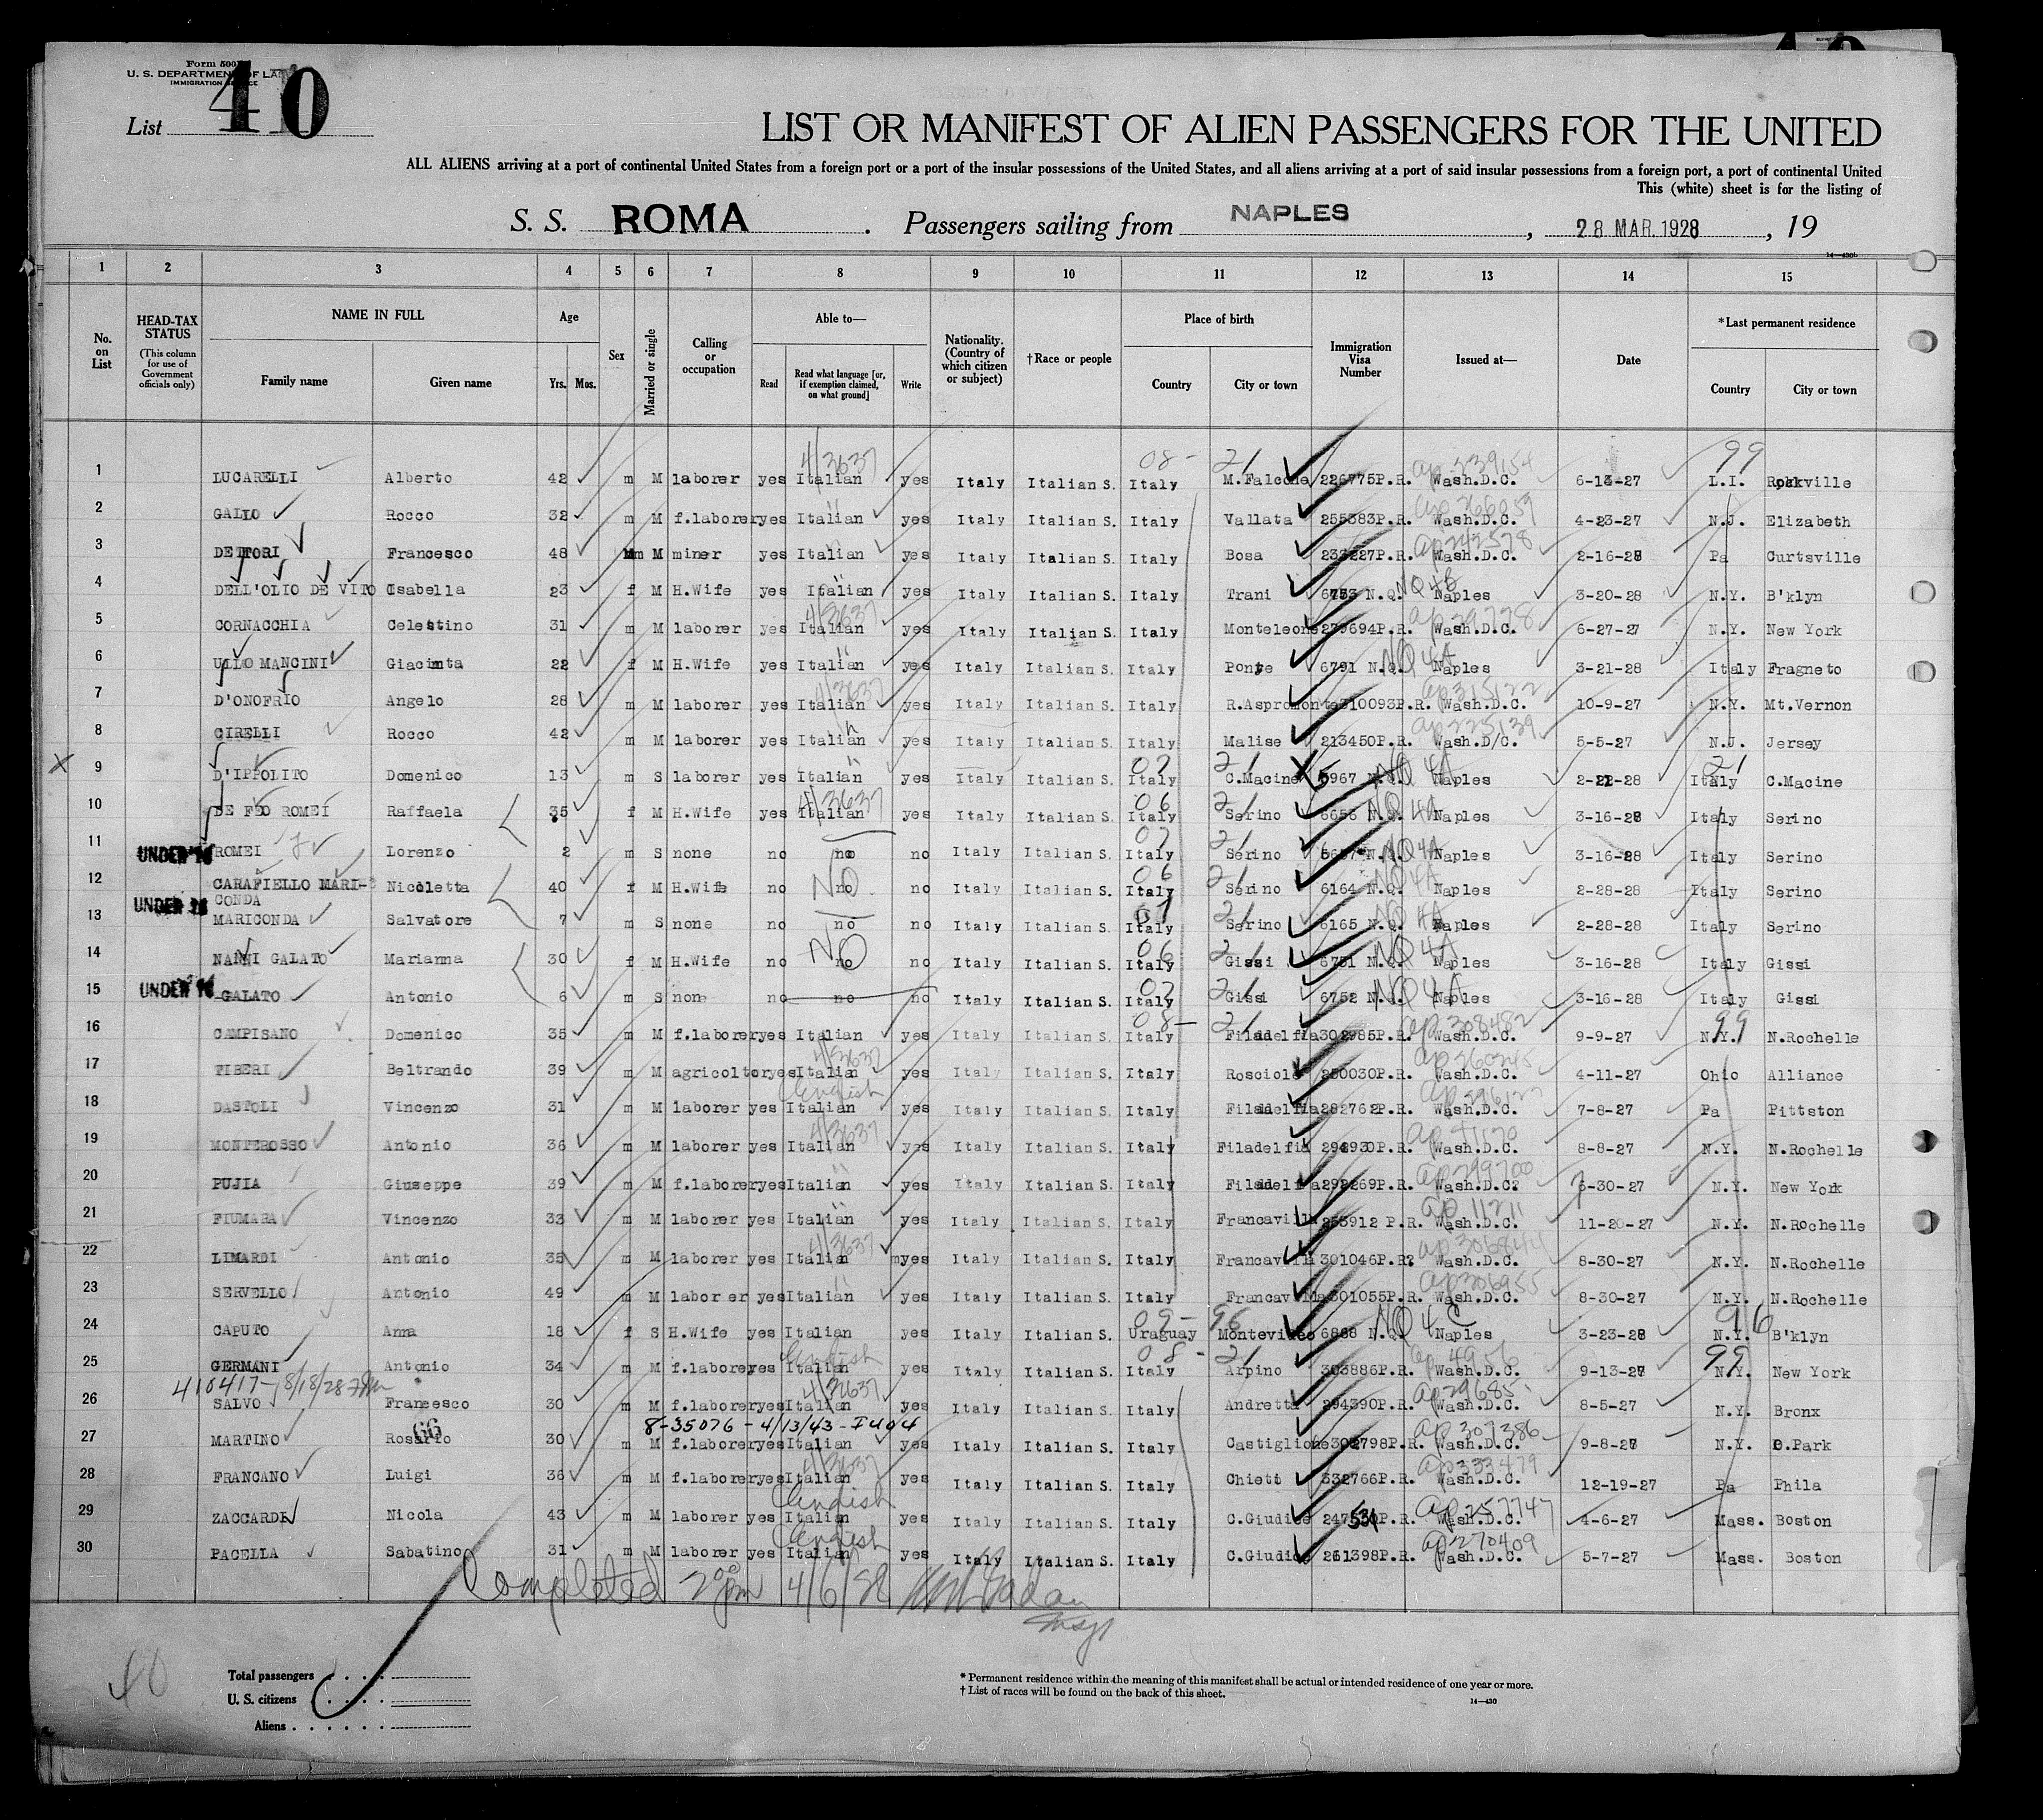 Form 500
U. S. DEPARTMENT OF LA
IMMIGRATION SERVICE
List 40
LIST OR MANIFEST OF ALIEN PASSENGERS FOR THE UNITED
ALL ALIENS arriving at a port of continental United States from a foreign port or a port of the insular possessions of the United States, and all aliens arriving at a port of said insular possessions from a foreign port, a port of continental United
This (white) sheet is for the listing of
S. S. ROMA . Passengers sailing from NAPLES , 28 MAR. 1928 , 19
14—430
1 2 3 4 5 6 7 8 9 10 11 12 13 14 15
No. on List
HEAD-TAX STATUS (This column for use of Government officials only)
NAME IN FULL Family name Given name
Age Yrs. Mos.
Sex
Married or single
Calling or occupation
Able to— Read Read what language [or, if exemption claimed, on what ground] Write
Nationality. (Country of which citizen or subject)
†Race or people
Place of birth Country City or town
Immigration Visa Number
Issued at—
Date
*Last permanent residence Country City or town
1 LUCARELLI Alberto 42 m M laborer yes Italian yes Italy Italian S. Italy M.Falcone 226775P.R. Wash.D.C. 6-13-27 L.I. Rockville
2 GALLO Rocco 32 m M f.laborer yes Italian yes Italy Italian S. Italy Vallata 255383P.R. Wash.D.C. 4-23-27 N.J. Elizabeth
3 DETTORI Francesco 48 m M miner yes Italian yes Italy Italian S. Italy Bosa P.R. Wash.D.C. 2-16-28 Pa Curtsville
4 DELL'OLIO DE VITO Isabella 23 f M H.Wife yes Italian yes Italy Italian S. Italy Trani 6753 N.Q. NQ 4B Naples 3-20-28 N.Y. B'klyn
5 CORNACCHIA Celestino 31 m M laborer yes Italian yes Italy Italian S. Italy Monteleone 279694P.R. Wash.D.C. 6-27-27 N.Y. New York
6 ULLO MANCINI Giacinta 22 f M H.Wife yes Italian yes Italy Italian S. Italy Ponte 6791 N.Q. NQ 4A Naples 3-21-28 Italy Fragneto
7 D'ONOFRIO Angelo 28 m M laborer yes Italian yes Italy Italian S. Italy R.Aspromonte 310093P.R. Wash.D.C. 10-9-27 N.Y. Mt.Vernon
8 CIRELLI Rocco 42 m M laborer yes Italian yes Italy Italian S. Italy Malise 213450P.R. Wash.D/C. 5-5-27 N.J. Jersey
X 9 D'IPPOLITO Domenico 13 m S laborer yes Italian yes Italy Italian S. Italy C.Macine 5967 N.Q. NQ 4A Naples 2-22-28 Italy C.Macine
10 DE FEO ROMEI Raffaela 35 f M H.Wife yes Italian yes Italy Italian S. Italy Serino 6656 N.Q. NQ 4A Naples 3-16-28 Italy Serino
11 UNDER 16 ROMEI Lorenzo 2 m S none no no no Italy Italian S. Italy Serino 6657 N.Q. NQ 4A Naples 3-16-28 Italy Serino
12 CARAFIELLO MARI-CONDA Nicoletta 40 f M H.Wife no no NO no Italy Italian S. Italy Serino 6164 N.Q. NQ 4A Naples 2-28-28 Italy Serino
13 UNDER 16 MARICONDA Salvatore 7 m S none no no no Italy Italian S. Italy Serino 6165 N.Q. NQ 4A Naples 2-28-28 Italy Serino
14 NANNI GALATO Marianna 30 f M H.Wife no no NO no Italy Italian S. Italy Gissi 6751 N.Q. NQ 4A Naples 3-16-28 Italy Gissi
15 UNDER 16 -GALATO Antonio 6 m S none no no no Italy Italian S. Italy Gissi 6752 N.Q. NQ 4A Naples 3-16-28 Italy Gissi
16 CAMPISANO Domenico 35 m M f.laborer yes Italian yes Italy Italian S. Italy Filadelfia 302985P.R. ap 308482 Wash.D.C. 9-9-27 N.Y. N.Rochelle
17 TIBERI Beltrando 39 m M agricoltor yes Italian yes Italy Italian S. Italy Rosciolo 250030P.R. Wash.D.C. 4-11-27 Ohio Alliance
18 DASTOLI Vincenzo 31 m M laborer yes Italian yes Italy Italian S. Italy Filadelfia 282762P.R. Wash.D.C. 7-8-27 Pa Pittston
19 MONTEROSSO Antonio 36 m M laborer yes Italian yes Italy Italian S. Italy Filadelfia P.R. Wash.D.C. 8-8-27 N.Y. N.Rochelle
20 PUJIA Giuseppe 39 m M f.laborer yes Italian yes Italy Italian S. Italy Filadelfia 292269P.R. Wash.D.C. 6-30-27 N.Y. New York
21 FIUMARA Vincenzo 33 m M laborer yes Italian yes Italy Italian S. Italy Francavilla P.R. ap 11211 Wash.D.C. 11-20-27 N.Y. N.Rochelle
22 LIMARDI Antonio 35 m M laborer yes Italian yes Italy Italian S. Italy Francavilla 301046P.R. Wash.D.C. 8-30-27 N.Y. N.Rochelle
23 SERVELLO Antonio 49 m M laborer yes Italian yes Italy Italian S. Italy Francavilla 301055P.R. ap 306955 Wash.D.C. 8-30-27 N.Y. N.Rochelle
24 CAPUTO Anna 18 f S H.Wife yes Italian yes Italy Italian S. Uruguay Montevideo 6868 N.Q. NQ 4 C Naples 3-23-28 N.Y. B'klyn
25 GERMANI Antonio 34 m M f.laborer yes Italian yes Italy Italian S. Italy Arpino 303886P.R. ap 4956 Wash.D.C. 9-13-27 N.Y. New York
410417-8/18/28
26 SALVO Francesco 30 m M f.laborer yes Italian yes Italy Italian S. Italy Andretta 294390P.R. Wash.D.C. 8-5-27 N.Y. Bronx
8-35076-4/13/43-I404
27 MARTINO Rosario 30 m M f.laborer yes Italian yes Italy Italian S. Italy Castiglione P.R. ap 307386 Wash.D.C. 9-8-27 N.Y. O.Park
28 FRANCANO Luigi 36 m M f.laborer yes Italian yes Italy Italian S. Italy Chieti 332766P.R. ap 333479 Wash.D.C. 12-19-27 Pa Phila
29 ZACCARDI Nicola 43 m M laborer yes Italian English yes Italy Italian S. Italy C.Giudice P.R. ap 257747 Wash.D.C. 4-6-27 Mass. Boston
30 PACELLA Sabatino 31 m M laborer yes Italian English yes Italy Italian S. Italy C.Giudice 261398P.R. ap 270409 Wash.D.C. 5-7-27 Mass. Boston
Completed 2 00 pm 4/6/28
40
Total passengers
U. S. citizens
Aliens
* Permanent residence within the meaning of this manifest shall be actual or intended residence of one year or more.
† List of races will be found on the back of this sheet.
14—430